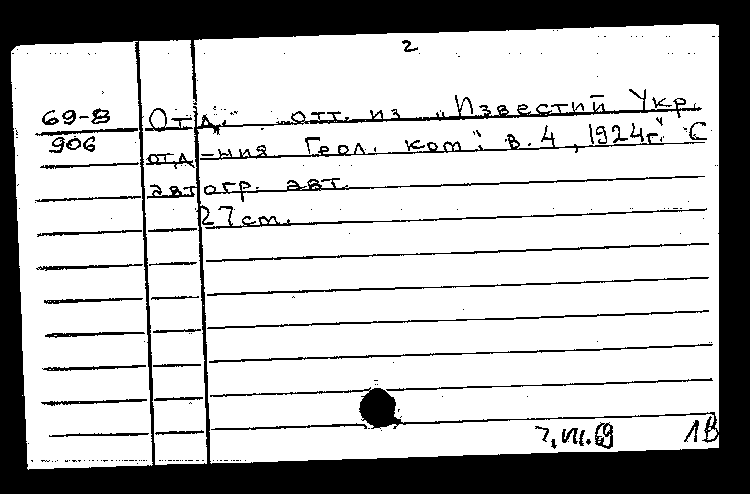 2
69-8 Отд. отт. из „Известий Укр.
906 отд-ния Геол. ком." в. 4, 1924г." С
автогр. авт.
27 cm.
7.VII.69 1В